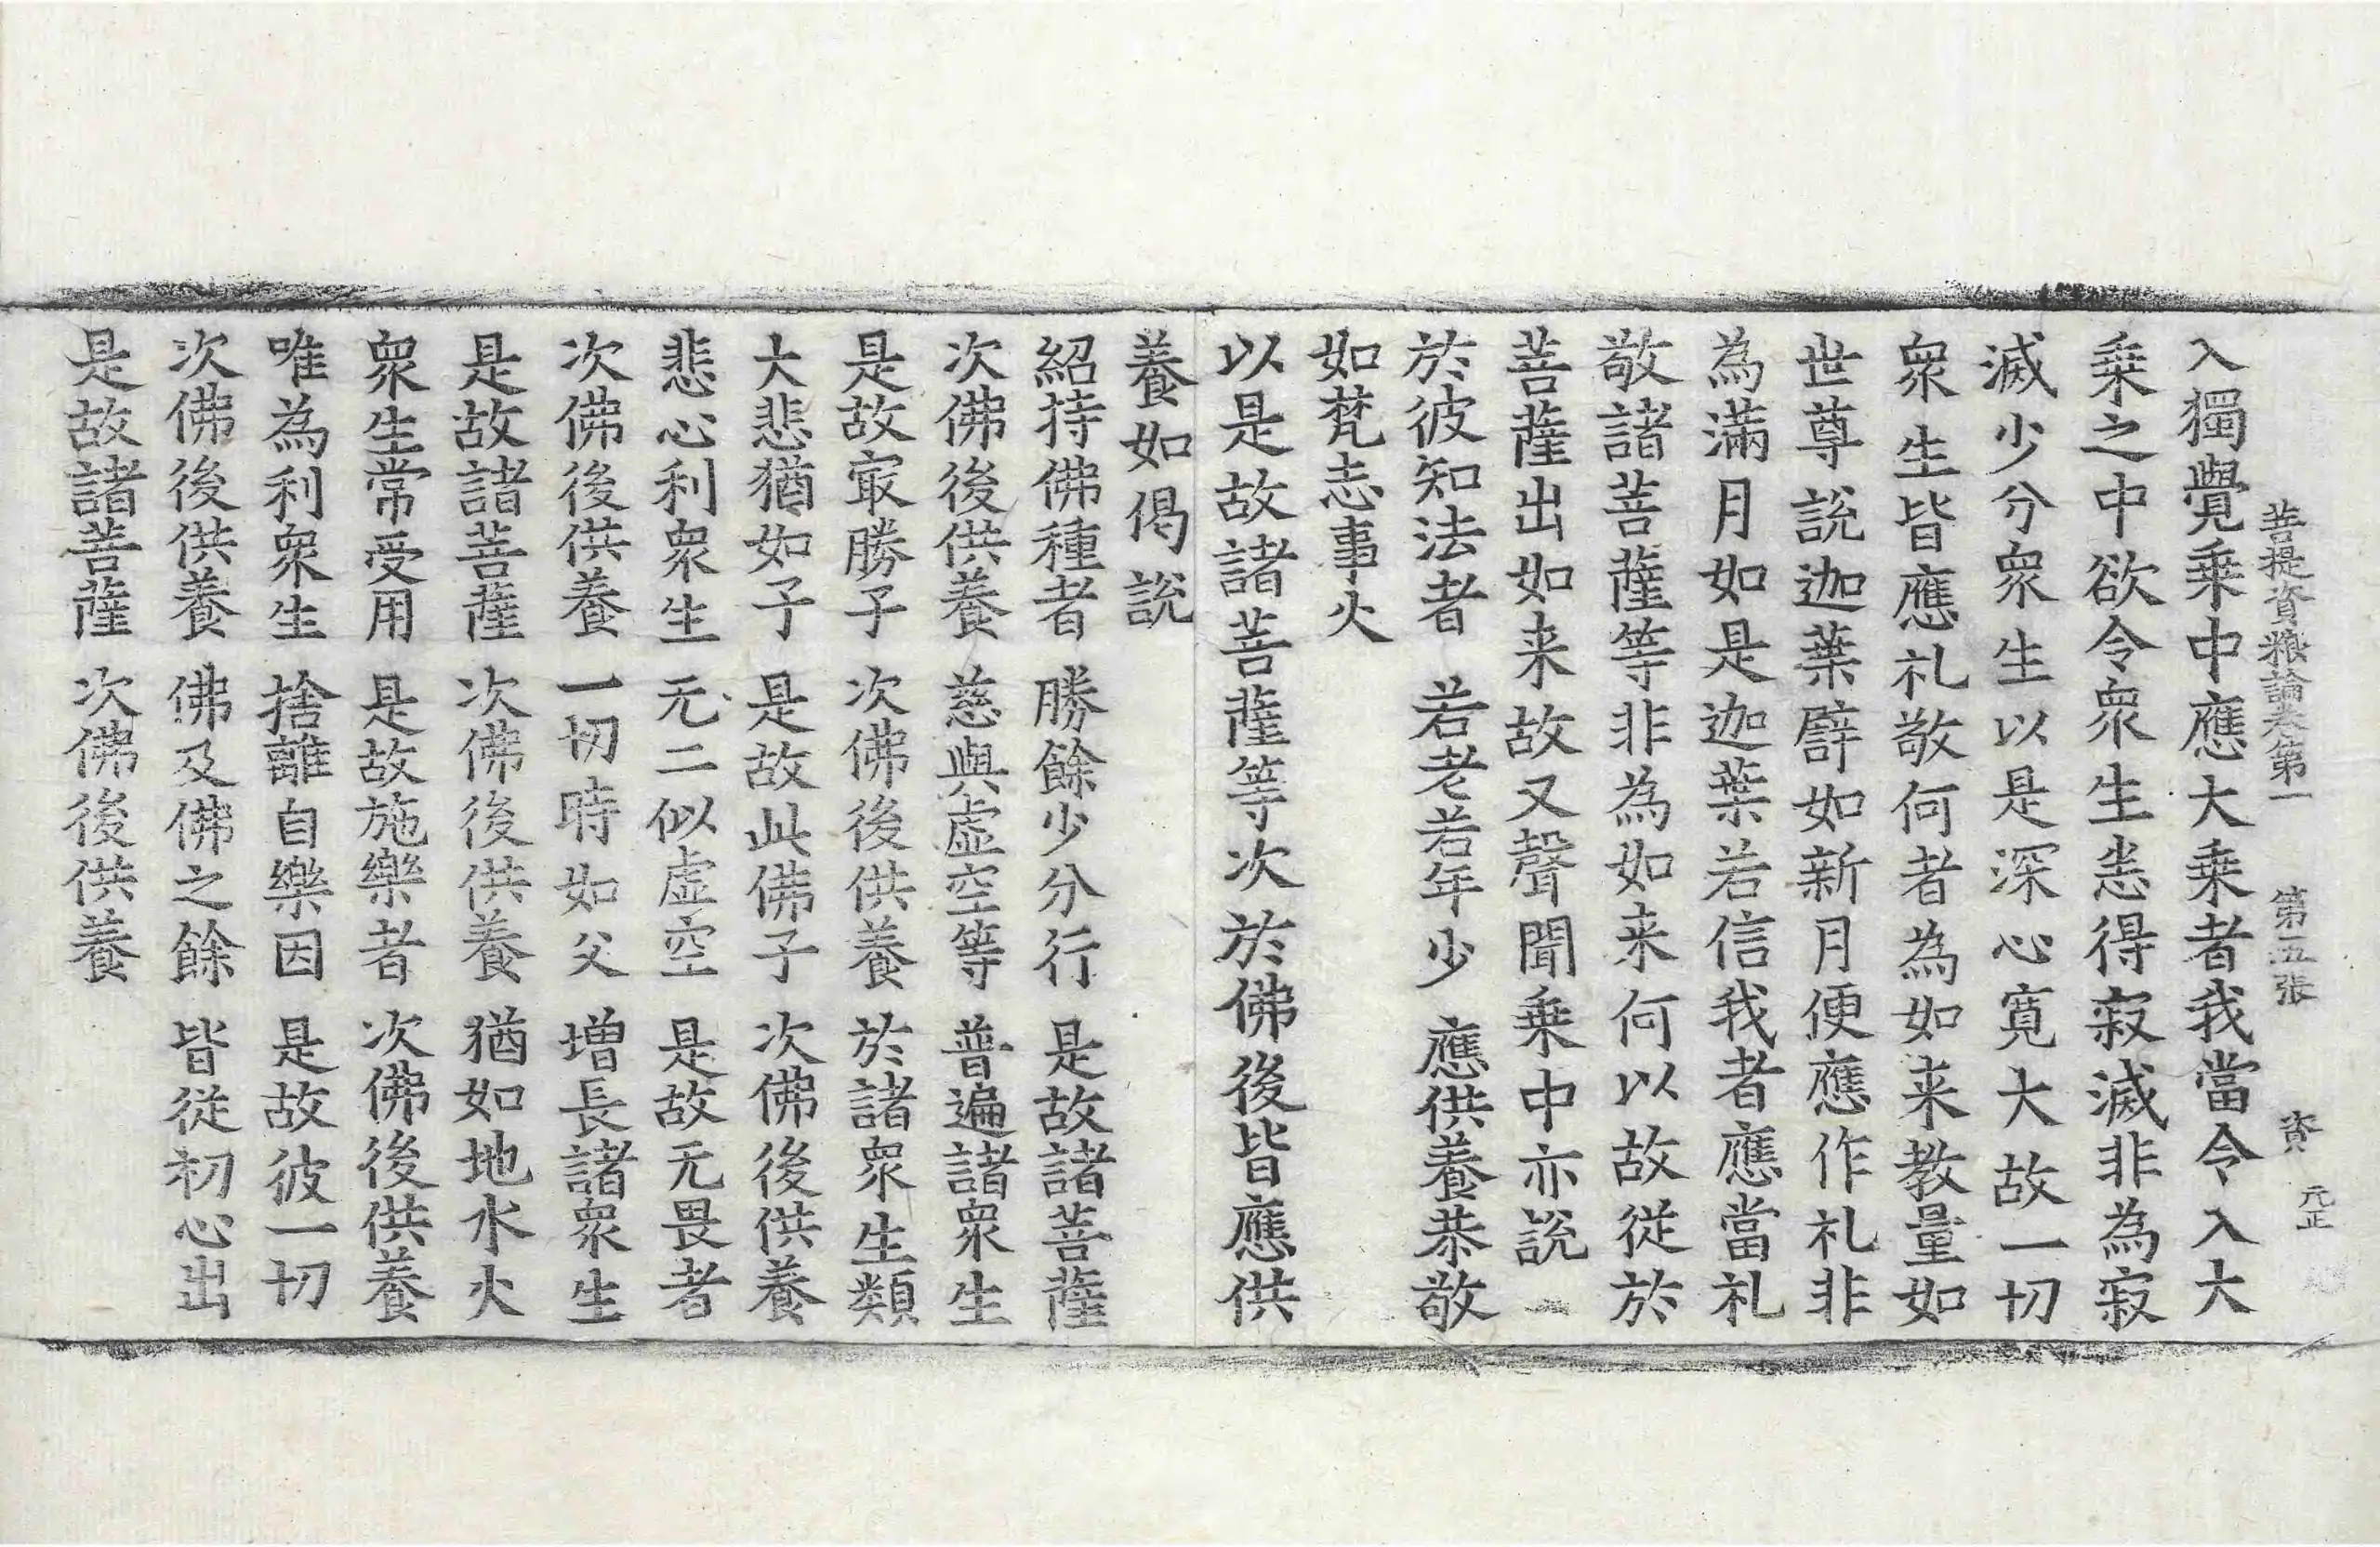 菩提資粮論卷第一　第五張　資　元正
入獨覺乗中應大乗者我當令入大
乗之中欲令衆生恙得寂滅非為寂
滅少分衆生以是深心寛大故一切
衆生皆應礼敬何者為如来教量如
世尊説迦葉辟如新月便應作礼非
為滿月如是迦葉若信我者應當礼
敬諸菩薩等非為如来何以故從於
菩薩出如来故又聲聞乗中亦説
於彼知法者　若老若年少　應供養恭敬
如梵志事火
以是故諸菩薩等次於佛後皆應供
養如偈説
紹持佛種者　勝餘少分行　是故諸菩薩
次佛後供養　慈與虛空等　普遍諸衆生
是故㝡勝子　次佛後供養　於諸衆生類
大悲猶如子　是故此佛子　次佛後供養
悲心利衆生　无二似虛空　是故无畏者
次佛後供養　一切時如父　増長諸衆生
是故諸菩薩　次佛後供養　猶如地水火
衆生常受用　是故施樂者　次佛後供養
唯為利衆生　捨離自樂因　是故彼一切
次佛後供養　佛及佛之餘　皆從初心出
是故諸菩薩　次佛後供養